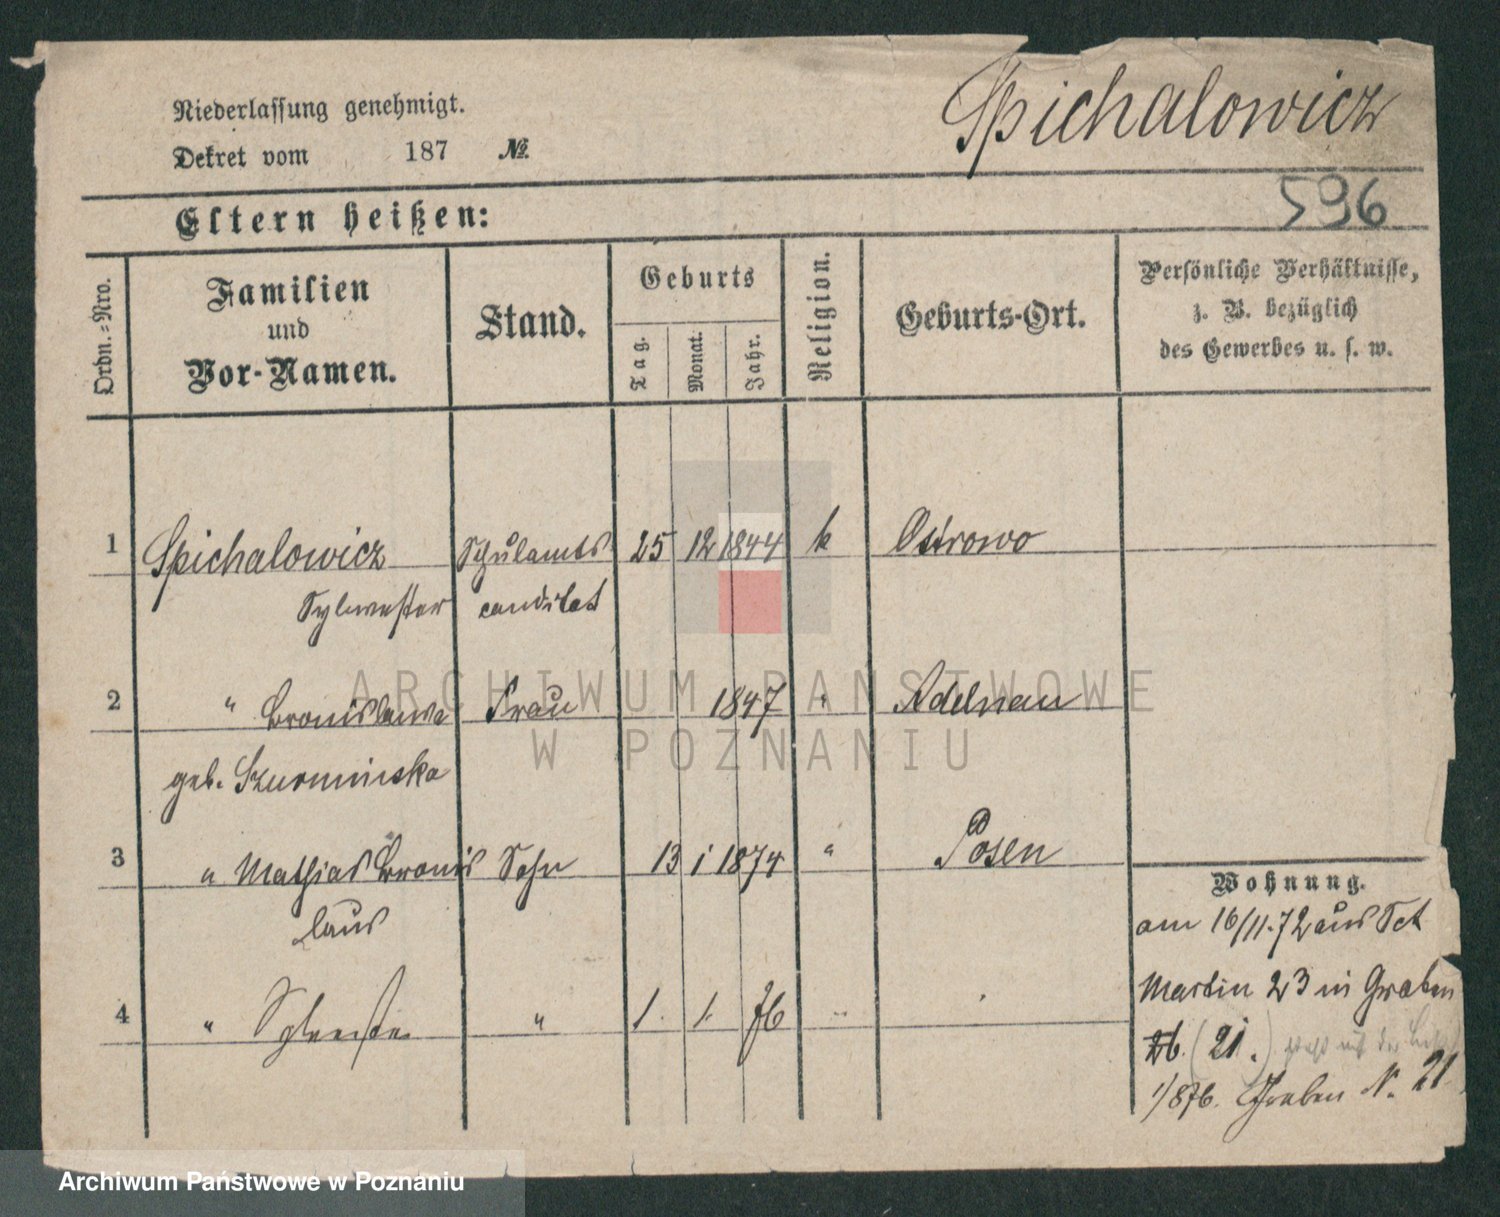 Spichalowicz
Niederlassung genehmigt.
Dekret vom 187 No.
596
Eltern heißen:
Ordn.-Nro.
Familien
und
Vor-Namen.
Stand.
Geburts
Tag.
Monat.
Jahr.
Religion.
Geburts-Ort.
Persönliche Verhältnisse,
z. B. bezüglich
des Gewerbes u. s. w.
1 Spichalowicz Schulamts 25 12 1844 k Ostrowo
Sylwester candidat
2 " Bronislawa Frau 1847 " Adelnau
geb. Szurminska
3 " Mathias Bronis Sohn 13 1 1874 " Posen
laus
4 " Sylvester " 1. 1. 76 "
Wohnung.
am 16/11.72 aus Sct
Martin 23 in Graben
26. (21.)
1/876. Graben N. 21
ARCHIWUM PAŃSTWOWE
W POZNANIU
Archiwum Państwowe w Poznaniu